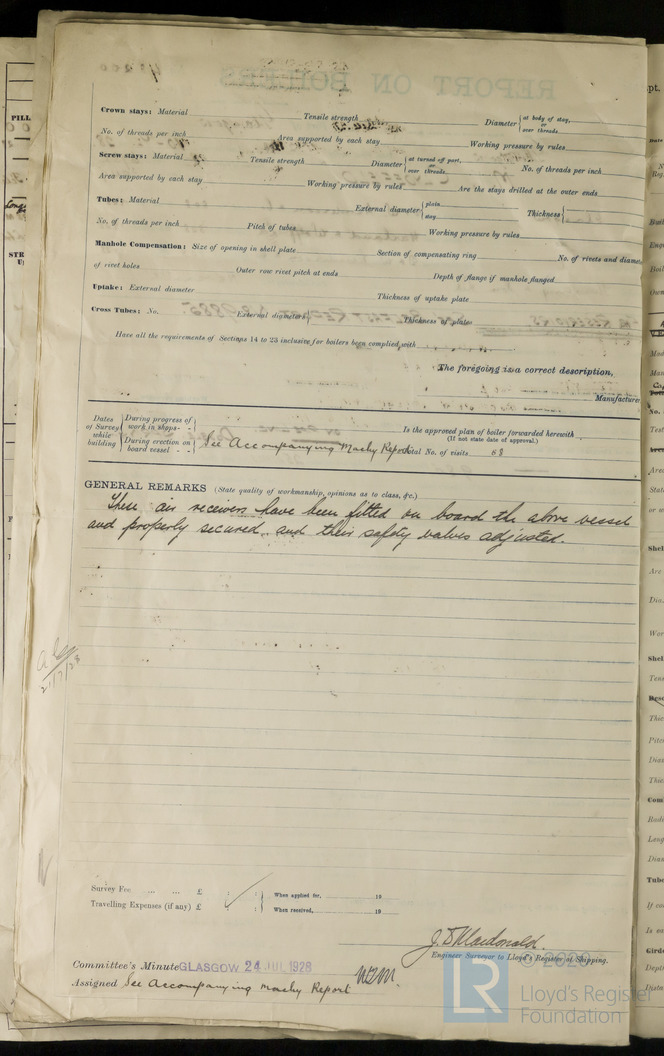 REPORT ON BOILERS
Crown stays: Material Tensile strength Diameter at body of stay, or over threads
No. of threads per inch Area supported by each stay Working pressure by rules
Screw stays: Material Tensile strength Diameter at turned off part, or over threads No. of threads per inch
Area supported by each stay Working pressure by rules Are the stays drilled at the outer ends
Tubes: Material External diameter plain stay Thickness
No. of threads per inch Pitch of tubes Working pressure by rules
Manhole Compensation: Size of opening in shell plate Section of compensating ring No. of rivets and
of rivet holes Outer row rivet pitch at ends Depth of flange if manhole flanged
Uptake: External diameter Thickness of uptake plate
Cross Tubes: No. External diameters Thickness of plates
Have all the requirements of Sections 14 to 23 inclusive for boilers been complied with
The foregoing is a correct description,
Manufacturer
Dates of Survey while building During progress of work in shops - - During erection on board vessel - - See Accompanying Machy Report
Is the approved plan of boiler forwarded herewith
(If not state date of approval.)
Total No. of visits 68
GENERAL REMARKS (State quality of workmanship, opinions as to class, &c.)
These air receivers have been fitted on board the above vessel
and properly secured and their safety valves adjusted.
21/7/28
Survey Fee ... ... £ : : When applied for, 19
Travelling Expenses (if any) £ : : When received, 19
J. S. Macdonald.
Engineer Surveyor to Lloyd's Register of Shipping.
Committee's Minute GLASGOW 24 JUL 1928
Assigned See Accompanying Machy Report
© 2020
LR Lloyd's Register Foundation